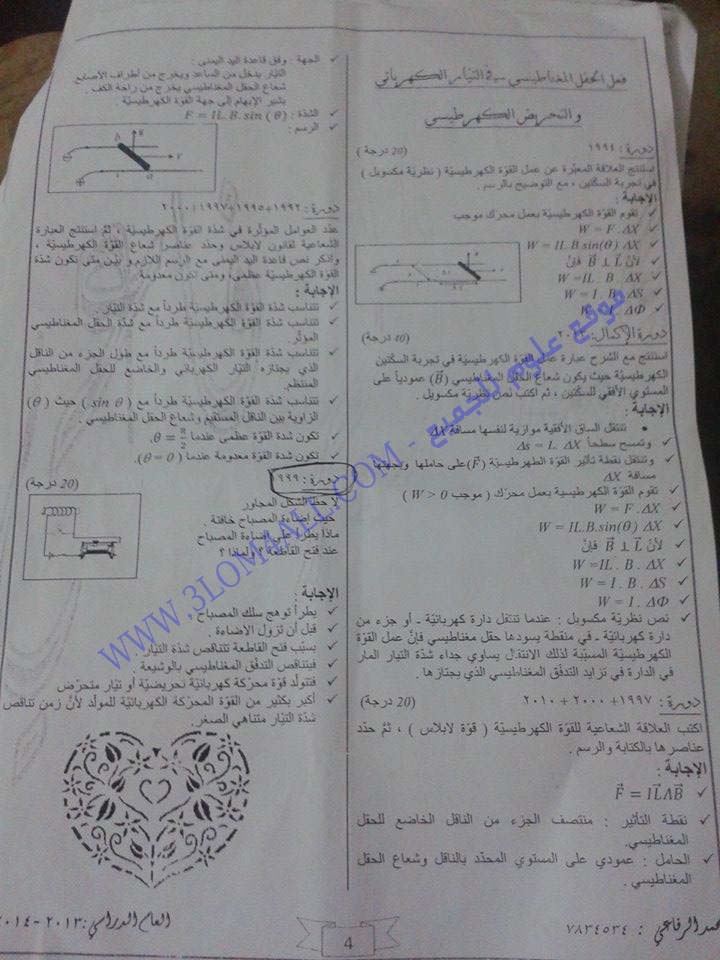 فعل الحقل المغناطيسي في التيار الكهربائي
والتحريض الكهرطيسي
دورة : ١٩٩٤ (20 درجة)
استنتج العلاقة المعبّرة عن عمل القوّة الكهرطيسيّة ( نظريّة مكسويل )
في تجربة السكّتين ، مع التوضيح بالرسم .
الإجابة :
✓ تقوم القوّة الكهرطيسيّة بعمل محرّك موجب
✓ W = F .ΔX
✓ W = IL.B.sin(θ) .ΔX
✓ لأنّ B ⊥ L فإنّ
✓ W =IL . B . ΔX
✓ W = I . B . ΔS
✓ W = I . ΔΦ
دورة الإكمال: (40 درجة)
استنتج مع الشرح عبارة عمل القوّة الكهرطيسيّة في تجربة السكّتين
الكهرطيسيّة حيث يكون شعاع الحقل المغناطيسي (B) عموديّاً على
المستوي الأفقي للسكّتين ، ثم اكتب نصّ نظريّة مكسويل .
الإجابة :
• تنتقل الساق الأفقية موازية لنفسها مسافة ΔX
✓ وتمسح سطحاً Δs = L. ΔX
✓ وتنتقل نقطة تأثير القوّة الطهرطيسيّة (F) على حاملها وبجهتها
مسافة ΔX
✓ تقوم القوّة الكهرطيسيّة بعمل محرّك ( موجب W > 0 )
✓ W = F .ΔX
✓ W = IL.B.sin(θ) .ΔX
✓ لأنّ B ⊥ L فإنّ
✓ W =IL . B . ΔX
✓ W = I . B . ΔS
✓ W = I . ΔΦ
✓ نص نظريّة مكسويل : عندما تنتقل دارة كهربائيّة - أو جزء من
دارة كهربائيّة - في منقطة يسودها حقل مغناطيسي فإنّ عمل القوّة
الكهرطيسيّة المسبّبة لذلك الانتقال يساوي جداء شدّة التيار المار
في الدارة في تزايد التدفق المغناطيسي الذي يجتازها .
دورة : ١٩٩٧ + ٢٠٠٠ + ٢٠١٠ (20 درجة)
اكتب العلاقة الشعاعية للقوّة الكهرطيسيّة ( قوّة لابلاس ) ، ثمّ حدّد
عناصرها بالكتابة والرسم .
الإجابة :
✓ F = IL Λ B
✓ نقطة التأثير : منتصف الجزء من الناقل الخاضع للحقل
المغناطيسي.
✓ الحامل : عمودي على المستوي المحدّد بالناقل وشعاع الحقل
المغناطيسي .
✓ الجهة : وفق قاعدة اليد اليمنى :
التيّار يدخل من الساعد ويخرج من أطراف الأصابع
شعاع الحقل المغناطيسي يخرج من راحة الكف .
يشير الإبهام إلى جهة القوة الكهرطيسيّة .
✓ الشدّة : F = IL.B.sin (θ)
✓ الرسم :
دورة : ١٩٩٢+١٩٩٥+١٩٩٧+٢٠٠٠
عدّد العوامل المؤثّرة في شدّة القوّة الكهرطيسيّة ، ثمّ استنتج العبارة
الشعاعية لقانون لابلاس وحدّد عناصر شعاع القوّة الكهرطيسيّة ،
واذكر نص قاعدة اليد اليمنى مع الرسم اللازم و بيّن متى تكون شدّة
القوّة الكهرطيسيّة عظمى، ومتى تكون معدومة
الإجابة :
✓ تتناسب شدّة القوّة الكهرطيسيّة طرداً مع شدّة التيّار .
✓ تتناسب شدّة القوّة الكهرطيسيّة طرداً مع شدّة الحقل المغناطيسي
المؤثّر.
✓ تتناسب شدّة القوّة الكهرطيسيّة طرداً مع طول الجزء من الناقل
الذي يجتازه التيّار الكهربائي والخاضع للحقل المغناطيسي
المنتظم.
✓ تتناسب شدّة القوّة الكهرطيسيّة طرداً مع (sin θ) حيث (θ)
الزاوية بين الناقل المستقيم وشعاع الحقل المغناطيسي .
✓ تكون شدّة القوّة عظمى عندما θ = π/2.
✓ تكون شدّة القوّة معدومة عندما (θ = 0).
دورة : ١٩٩٩ (20 درجة)
لاحظ الشكل المجاور
حيث إضاءة المصباح خافتة .
ماذا يطرأ على إضاءة المصباح
عند فتح القاطعة ؟ ولماذا ؟
الإجابة :
✓ يطرأ توهج سلك المصباح
✓ قبل أن تزول الاضاءة .
✓ بسبب فتح القاطعة تتناقص شدّة التيّار
✓ فيتناقص التدفّق المغناطيسي بالوشيعة
✓ فتتولّد قوة محركة كهربائيّة تحريضيّة أو تيّار متحرّض
✓ أكبر بكثير من القوّة المحركة الكهربائيّة للمولّد لأنّ زمن تناقص
شدّة التيّار متناهي الصغر.
موقع علوم للجميع - WWW.3LOM4ALL.COM
الرفاعي : ٧٨٣٤٥٣٤
4
العام الدراسي: ٢٠١٣-٢٠١٤